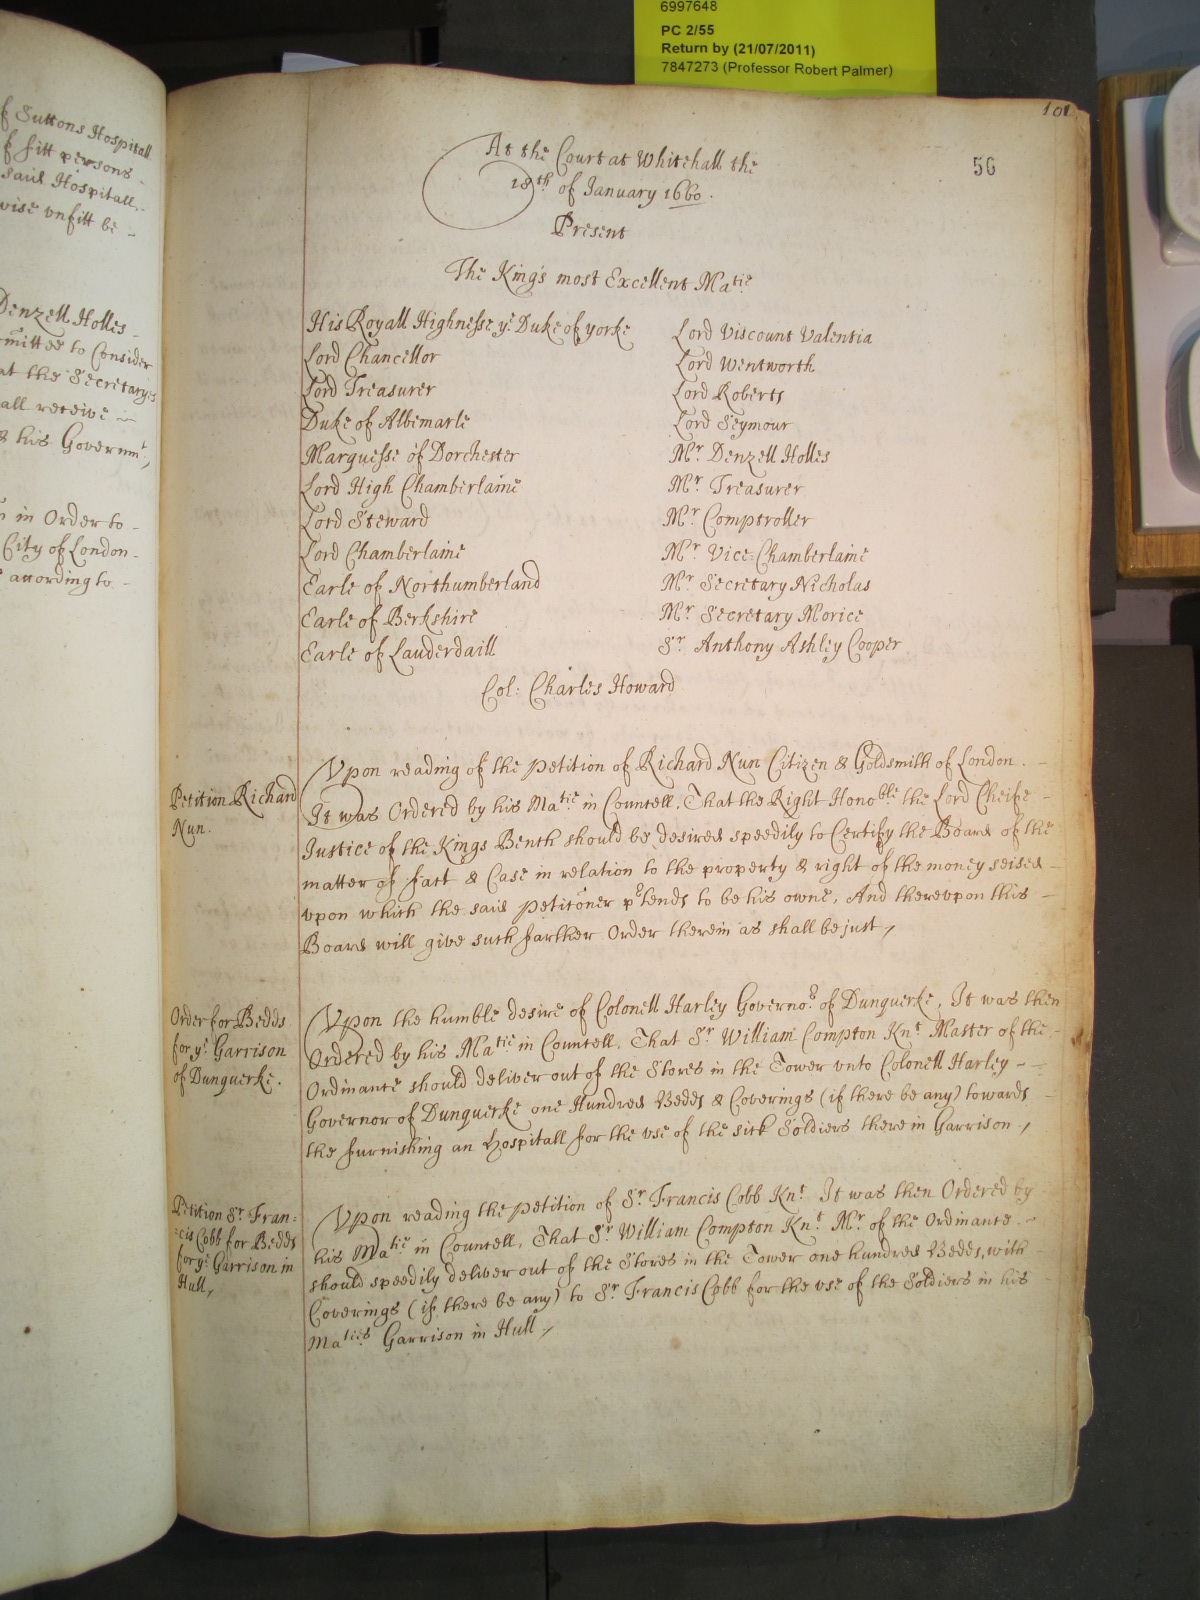 6997648
PC 2/55
Return by (21/07/2011)
7847273 (Professor Robert Palmer)
f Suttons Hospitall
f fitt persons
said Hospitall
wise vnfitt be
Denzell Holles
mittee to Consider
at the Secretarys
all receive
& his Governmt,
in Order to
City of London
according to
101
56
At the Court at Whitehall the
18th of January 1660.
Present
The Kings most Excellent Matie
His Royall Highnesse ye Duke of yorke
Lord Chancellor
Lord Treasurer
Duke of Albemarle
Marquesse of Dorchester
Lord High Chamberlaine
Lord Steward
Lord Chamberlaine
Earle of Northumberland
Earle of Berkshire
Earle of Lauderdaill
Lord Viscount Valentia
Lord Wentworth
Lord Roberts
Lord Seymour
Mr. Denzell Holles
Mr. Treasurer
Mr. Comptroller
Mr. Vice-Chamberlaine
Mr. Secretary Nicholas
Mr. Secretary Morice
Sr. Anthony Ashley Cooper
Col: Charles Howard
Petition Richard
Nun.
Vpon reading of the Petition of Richard Nun Citizen & Goldsmith of London.
It was Ordered by his Matie in Councell, That the Right Honoble the Lord Cheife
Justice of the Kings Bench should be desired speedily to Certify the Board of the
matter of fact & Case in relation to the property & right of the money seised
vpon which the said Petitoner ptends to be his owne, And therevpon this
Board will give such farther Order therein as shall be just,
Order for Bedds
for ye Garrison
of Dunquerke.
Vpon the humble desire of Colonell Harley Governor of Dunquerke, It was then
Ordered by his Matie in Councell, That Sr William Compton Knt Master of the
Ordinance should deliver out of the Stores in the Tower vnto Colonell Harley
Governor of Dunquerke one Hundred Bedds & Coverings (if there be any) towards
the furnishing an Hospitall for the vse of the sick Soldiers there in Garrison,
Petition Sr. Fran:
:cis Cobb for Bedds
for ye Garrison in
Hull,
Vpon reading the Petition of Sr. Francis Cobb Knt. It was then Ordered by
his Matie in Councell, That Sr. William Compton Knt. Mr. of the Ordinance
should speedily deliver out of the Stores in the Tower one hundred Bedds, with
Coverings (if there be any) to Sr. Francis Cobb for the vse of the Soldiers in his
Maties Garrison in Hull,